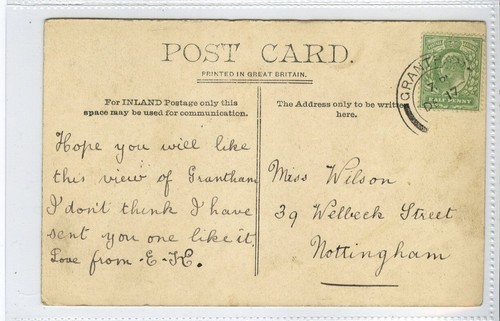 POST CARD.
PRINTED IN GREAT BRITAIN.
For INLAND Postage only this
space may be used for communication.
Hope you will like
this view of Grantham
I don't think I have
sent you one like it.
Love from -E-K.
The Address only to be written
here.
Miss Wilson
39 Welbeck Street
Nottingham
GRANTHAM
DE 17
HALF PENNY